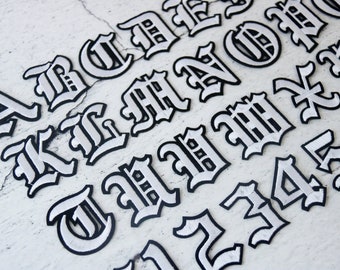 A B C D E
K L M N O P
T U V W X
1 2 3 4 5